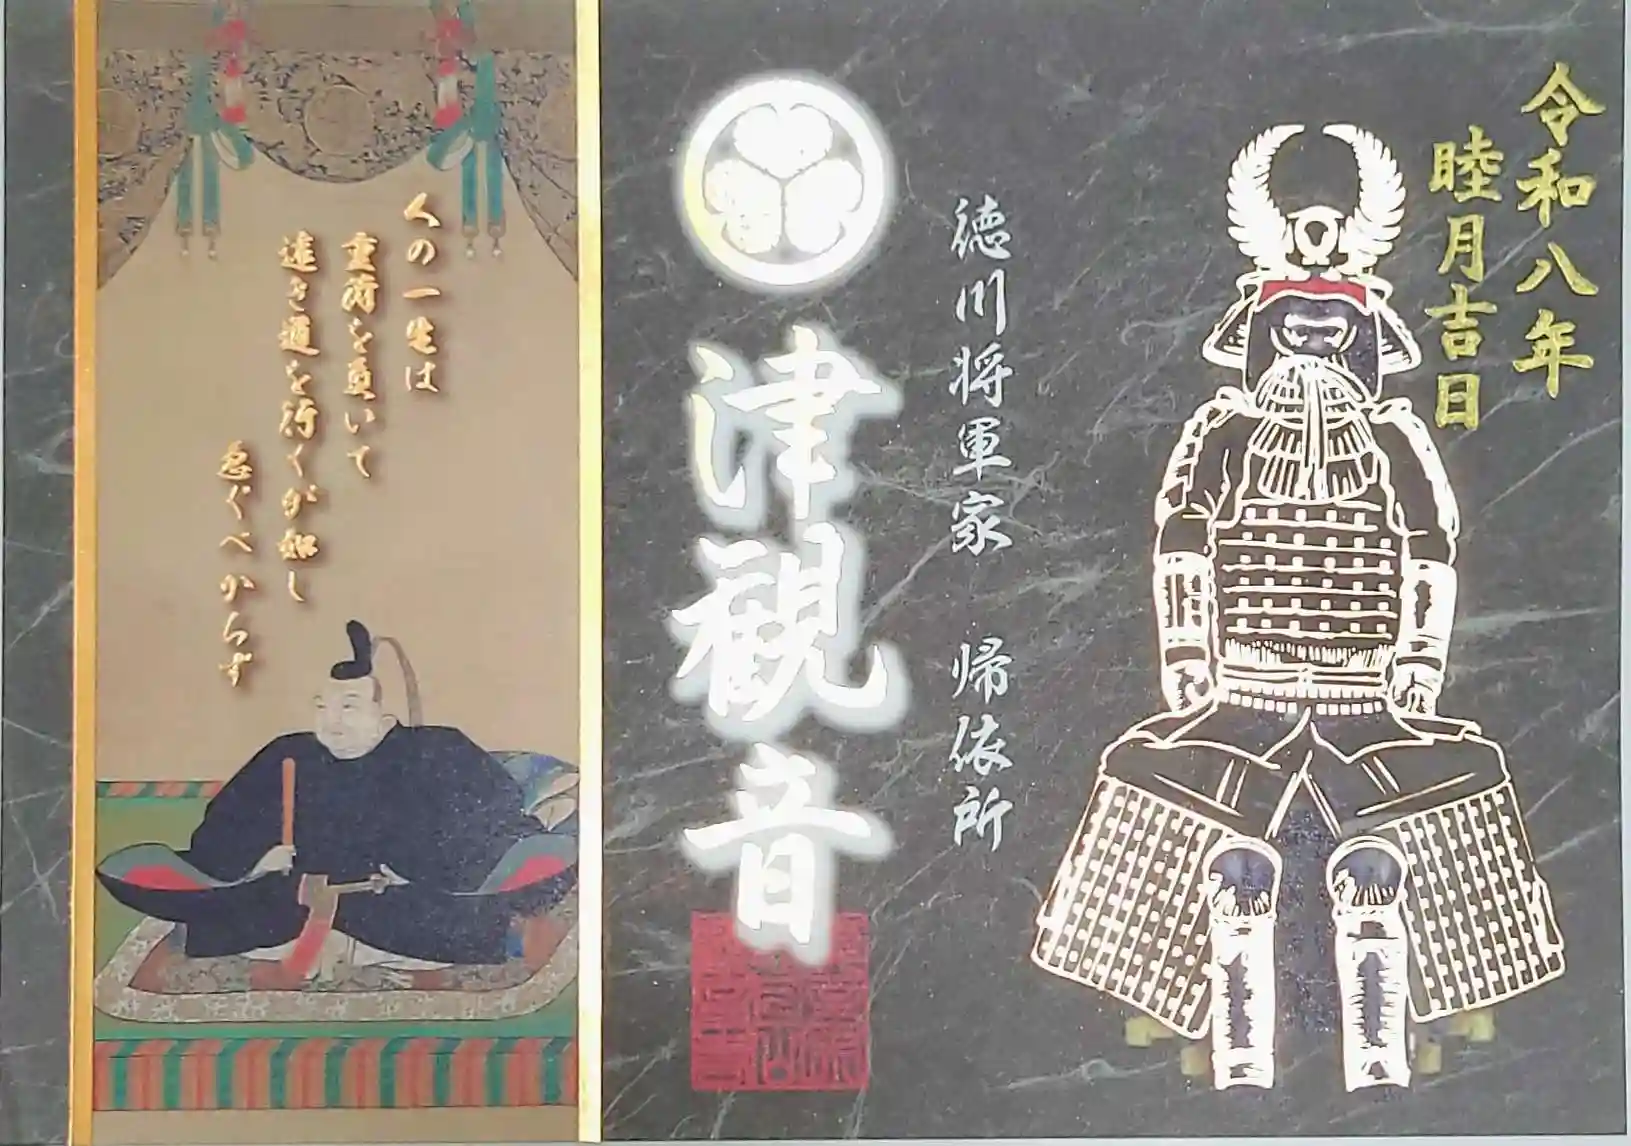 令和八年
睦月吉日
徳川将軍家　帰依所
津観音
人の一生は
重荷を負いて
遠き道を行くが如し
急ぐべからず